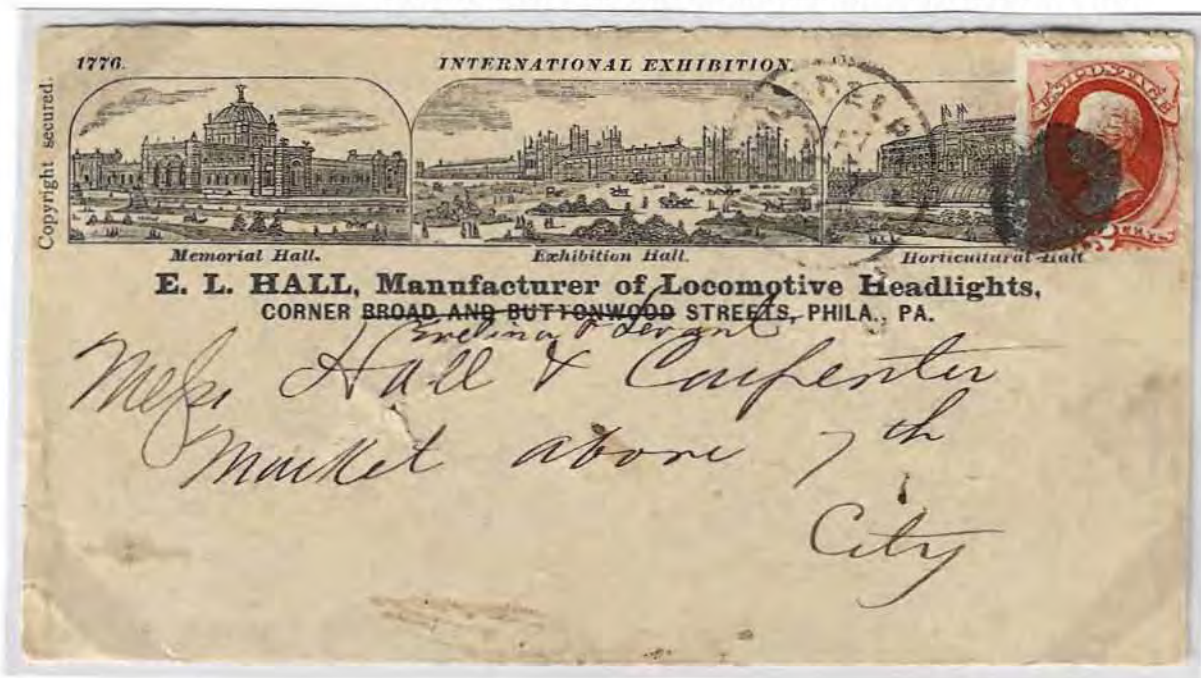 1776. INTERNATIONAL EXHIBITION.
Copyright secured.
Memorial Hall. Exhibition Hall. Horticultural Hall
E. L. HALL, Manufacturer of Locomotive Headlights,
CORNER BROAD AND BUTTONWOOD STREETS, PHILA., PA.
Hall & Carpenter
Market above 7th
City